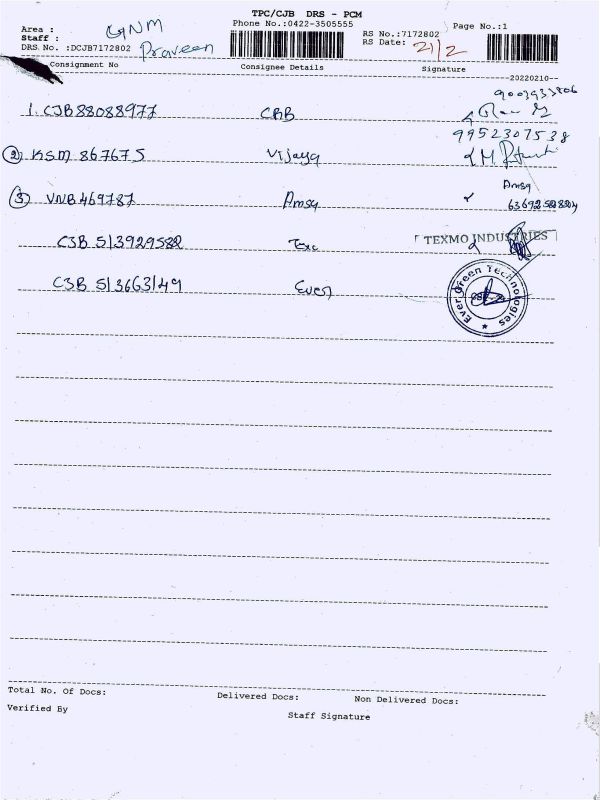 TPC/CJB DRS - PCM
Phone No.:0422-3505555
Page No.:1
Area : GNM
Staff : Praveen
DRS No. :DCJB7172802
RS No.:7172802
RS Date: 21/2
Consignment No Consignee Details Signature
20220210
9003933806
1. CJB88088977 CBB
9952307538
2 KSM 867675 Vijaya
Amsa
3 VNB469787 Amsa
CJB 513929582 Texc TEXMO INDUSTRIES
CJB 513663149 Ever
Ever Green Technologies
Total No. Of Docs: Delivered Docs: Non Delivered Docs:
Verified By Staff Signature